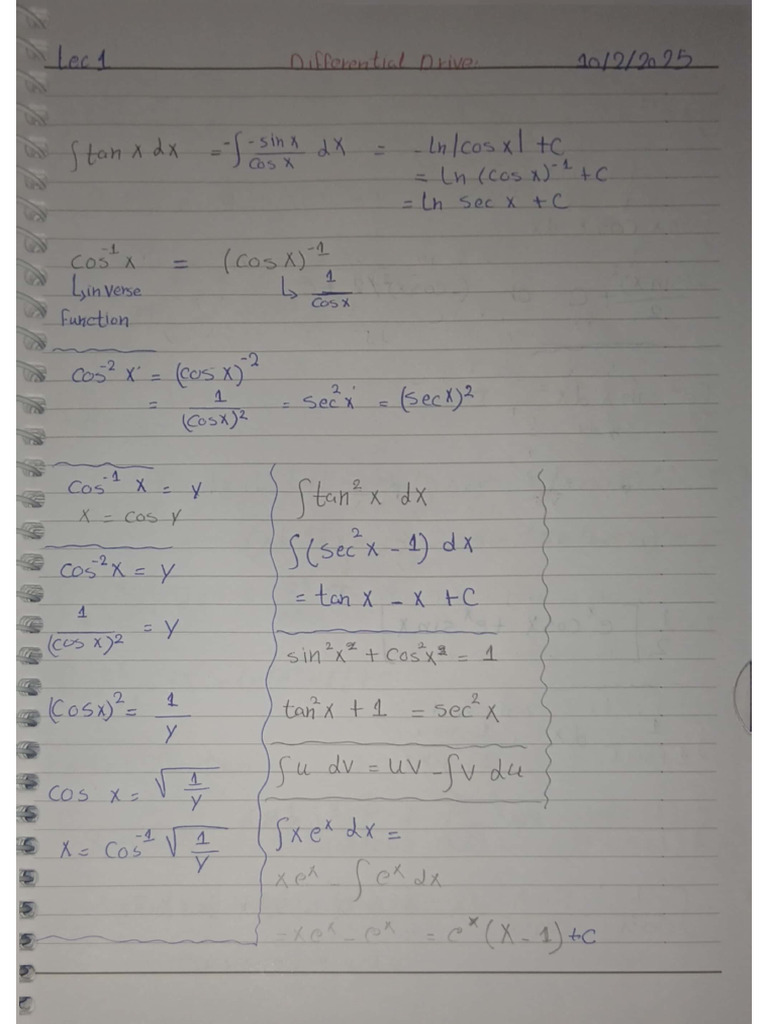 Lec 1 Differential Drive. 10/2/2025
∫ tan x dx = -∫ -sin x / cos x dx = -ln|cos x| + C
= ln (cos x)⁻¹ + C
= ln sec x + C
cos⁻¹ x = (cos x)⁻¹
↳ inverse ↳ 1 / cos x
function
cos⁻² x = (cos x)⁻²
= 1 / (cos x)² = sec² x = (sec x)²
cos⁻¹ x = y
x = cos y
cos⁻² x = y
1 / (cos x)² = y
(cos x)² = 1 / y
cos x = √(1 / y)
x = cos⁻¹ √(1 / y)
∫ tan² x dx
∫ (sec² x - 1) dx
= tan x - x + C
sin² x + cos² x = 1
tan² x + 1 = sec² x
∫ u dv = uv - ∫ v du
∫ x eˣ dx =
x eˣ - ∫ eˣ dx
- x eˣ - eˣ = eˣ (x - 1) + C